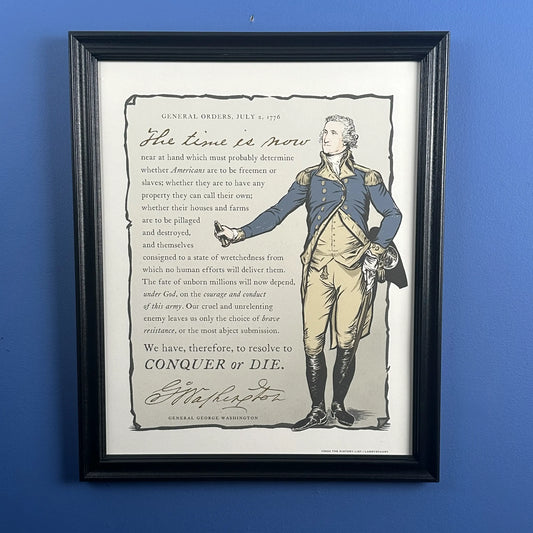 GENERAL ORDERS, JULY 2, 1776
The time is now
near at hand which must probably determine
whether Americans are to be freemen or
slaves; whether they are to have any
property they can call their own;
whether their houses and farms
are to be pillaged
and destroyed,
and themselves
consigned to a state of wretchedness from
which no human efforts will deliver them.
The fate of unborn millions will now depend,
under God, on the courage and conduct
of this army. Our cruel and unrelenting
enemy leaves us only the choice of brave
resistance, or the most abject submission.
We have, therefore, to resolve to
CONQUER or DIE.
Go Washington
GENERAL GEORGE WASHINGTON